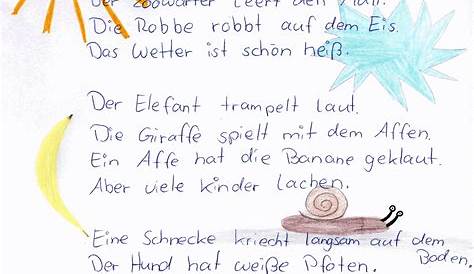 Der Zoowärter leert den Müll.
Die Robbe robbt auf dem Eis.
Das Wetter ist schön heiß.
Der Elefant trampelt laut.
Die Giraffe spielt mit dem Affen.
Ein Affe hat die Banane geklaut.
Aber viele kinder lachen.
Eine Schnecke kriecht langsam auf dem
Boden.
Der Hund hat weiße Pfoten.